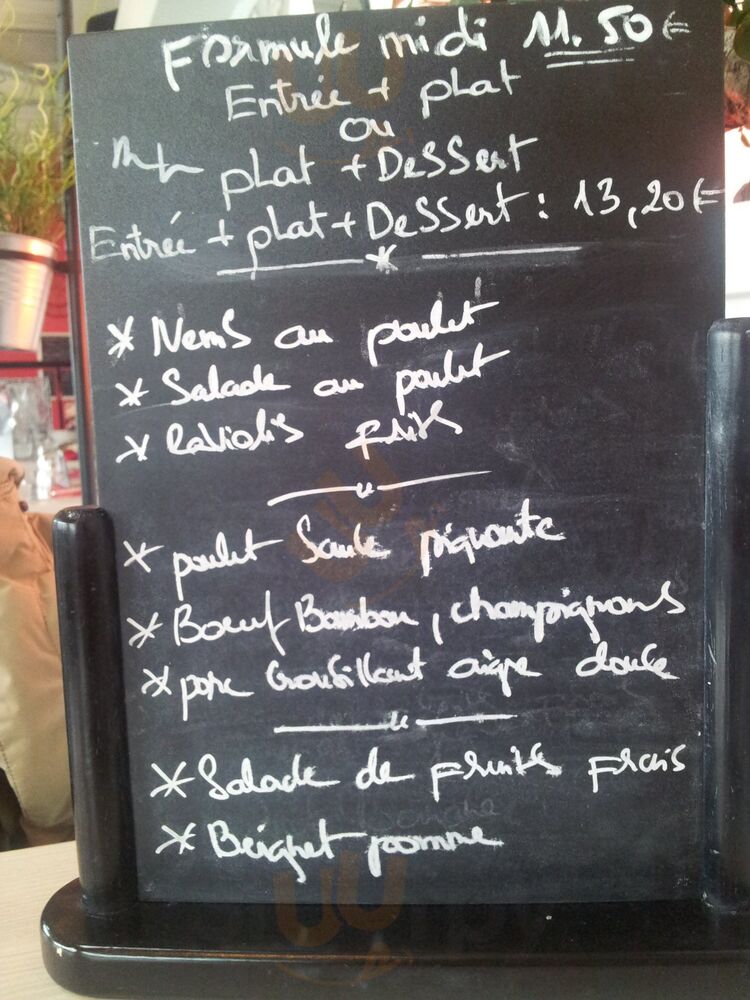 Formule midi 11.50€
Entrée + plat
ou
plat + Dessert
Entrée + plat + Dessert : 13,20€
* Nems au poulet
* Salade au poulet
* Raviolis frits
* poulet Sauce piquante
* Boeuf Bambou, champignons
* porc Croustillant aigre douce
* Salade de fruits frais
* Beignet pomme